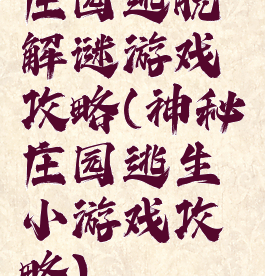 庄园逃脱
解谜游戏
攻略(神秘
庄园逃生
小游戏攻
略)